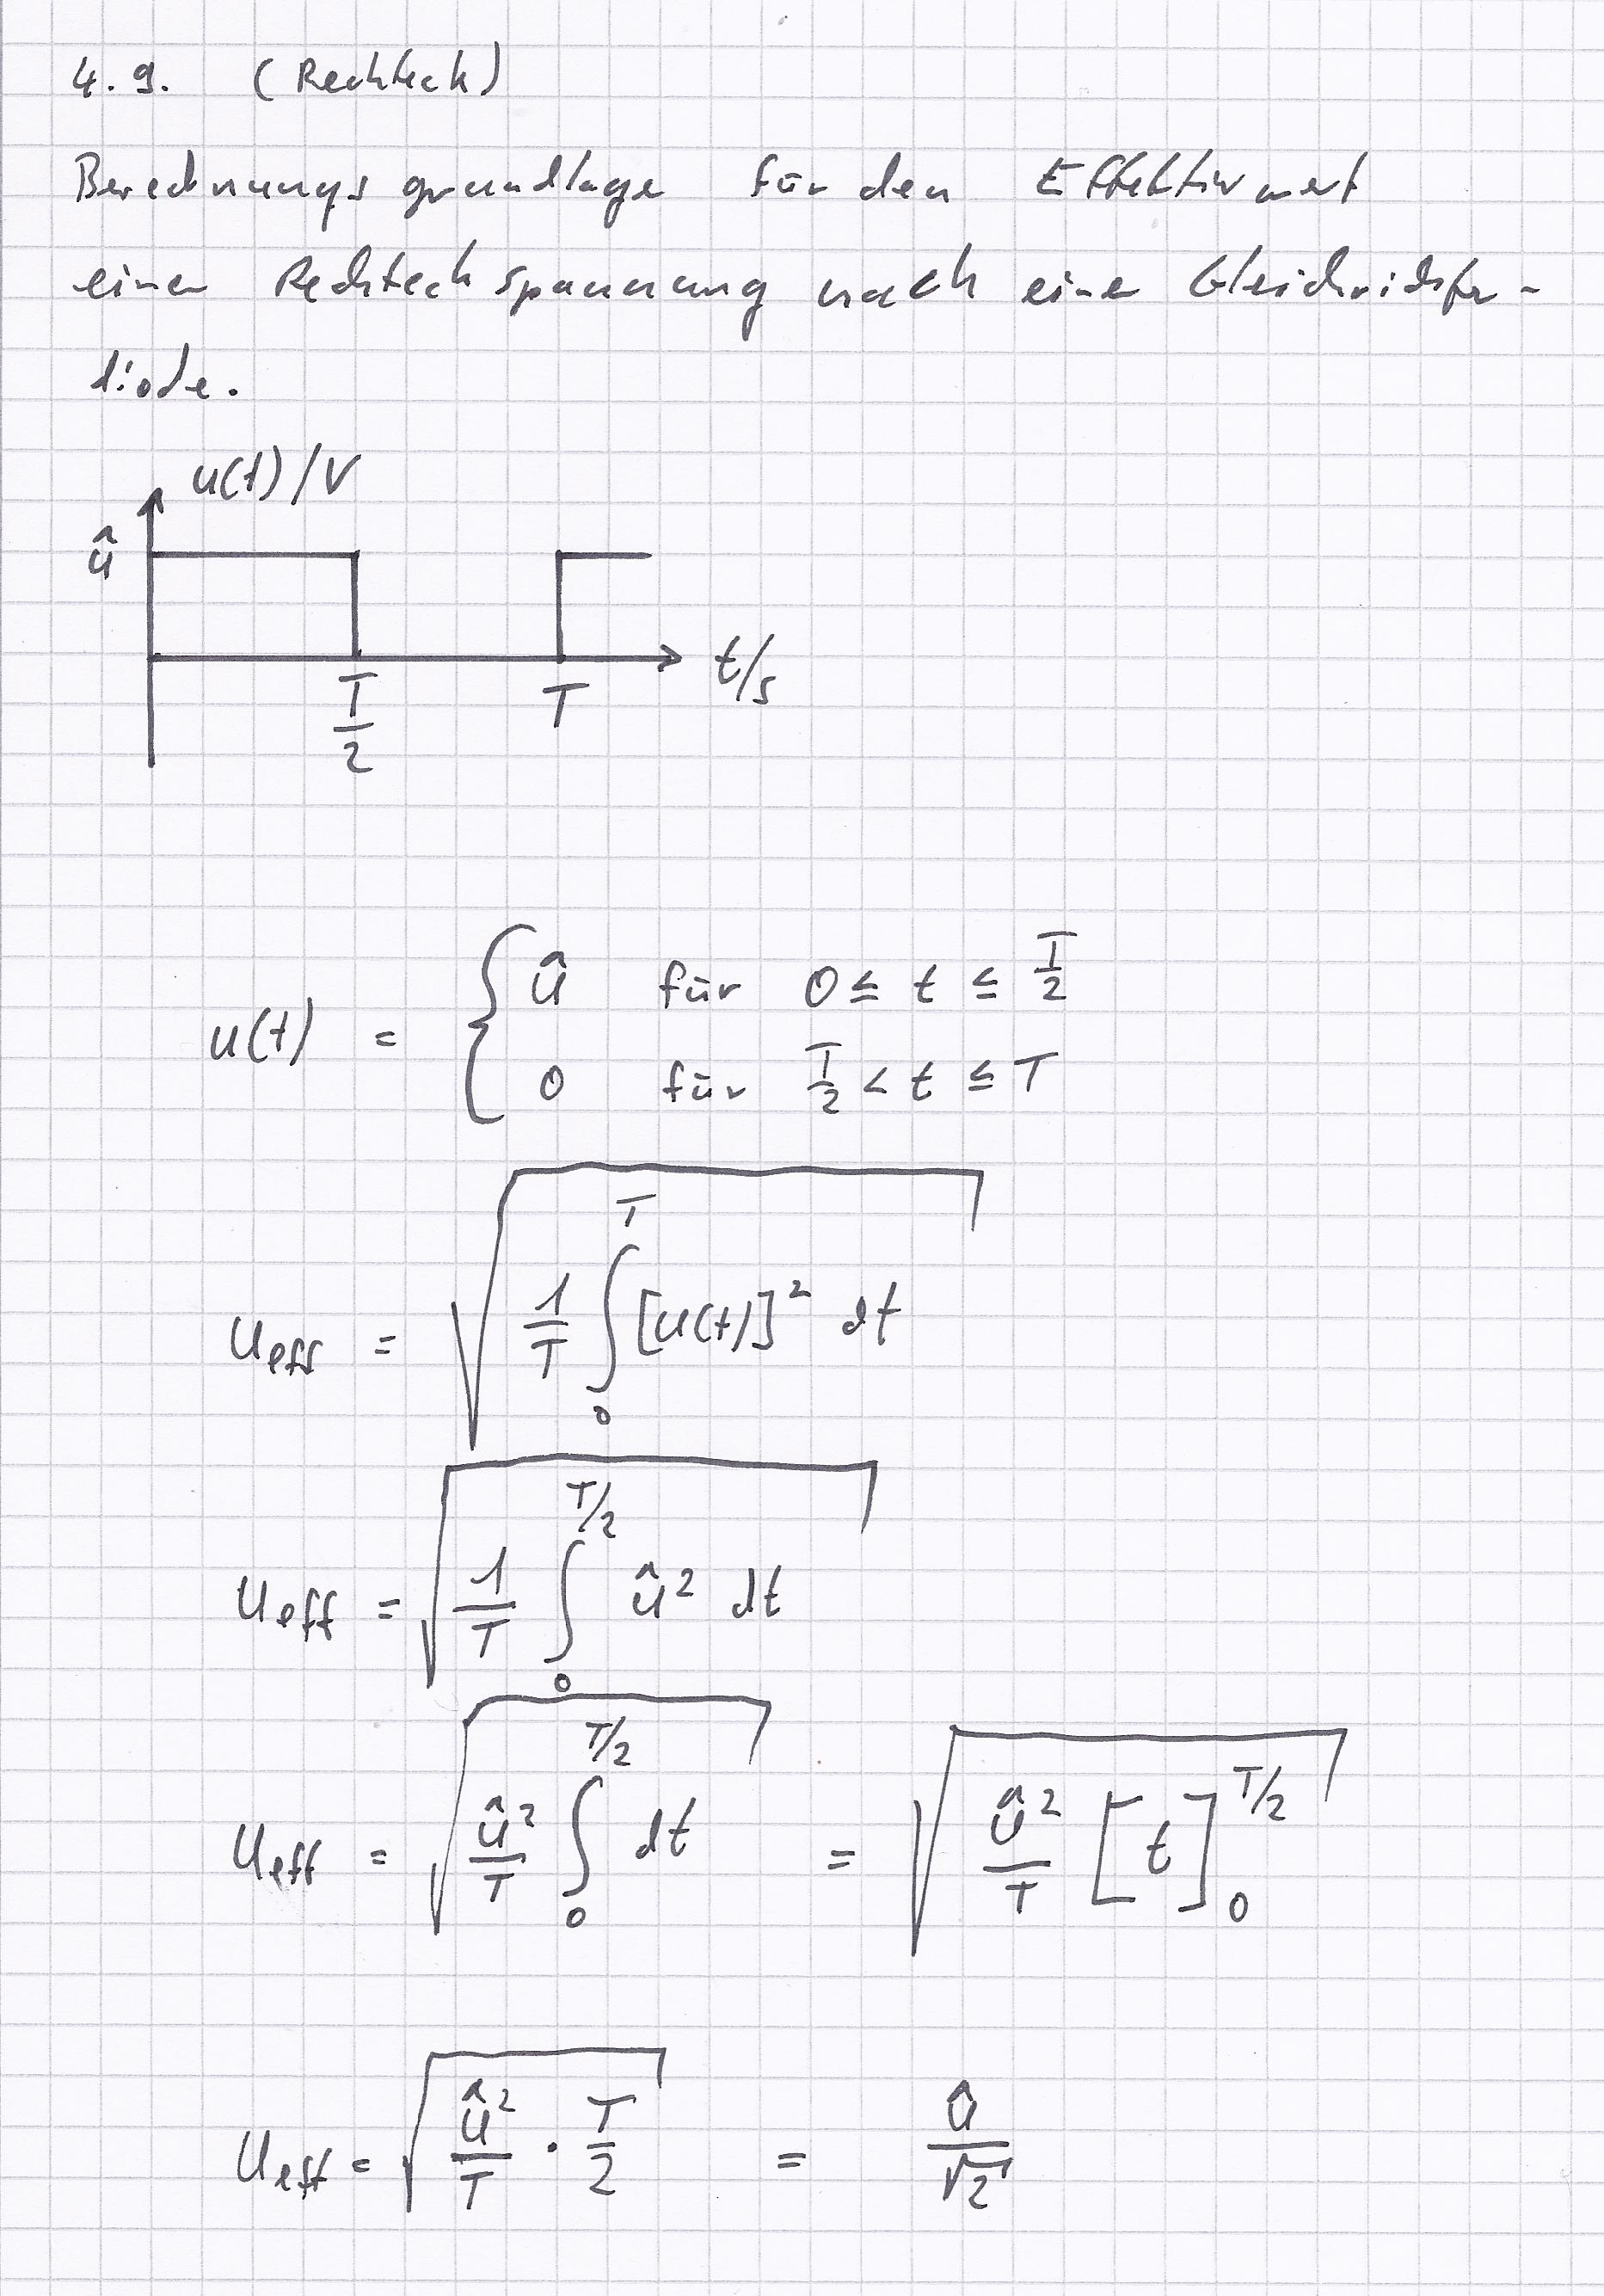 4.9. (Rechteck)
Berechnungsgrundlage für den Effektivwert
einer Rechteckspannung nach einer Gleichrichter-
diode.
u(t)/V
û
t/s
T/2 T
u(t) = { û für 0 ≤ t ≤ T/2
0 für T/2 < t ≤ T
U_eff = √( 1/T ∫_0^T [u(t)]² dt )
U_eff = √( 1/T ∫_0^{T/2} û² dt )
U_eff = √( û²/T ∫_0^{T/2} dt ) = √( û²/T [t]_0^{T/2} )
U_eff = √( û²/T · T/2 ) = û/√2